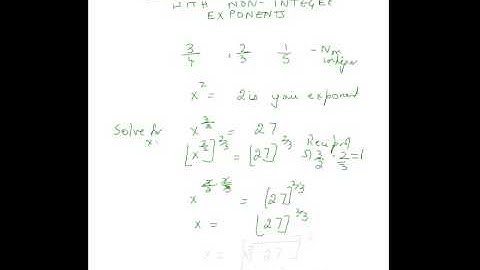 WITH NON-INTEGER
EXPONENTS
3/4 , 2/3 1/5 - Non integer
x² = 2 is you exponent
Solve for x. x^(3/2) = 27
[x^(3/2)]^(2/3) = [27]^(2/3) 3/2 · 2/3 = 1
x^(3/2 · 2/3) = [27]^(2/3)
x = [27]^(2/3)
x = 27